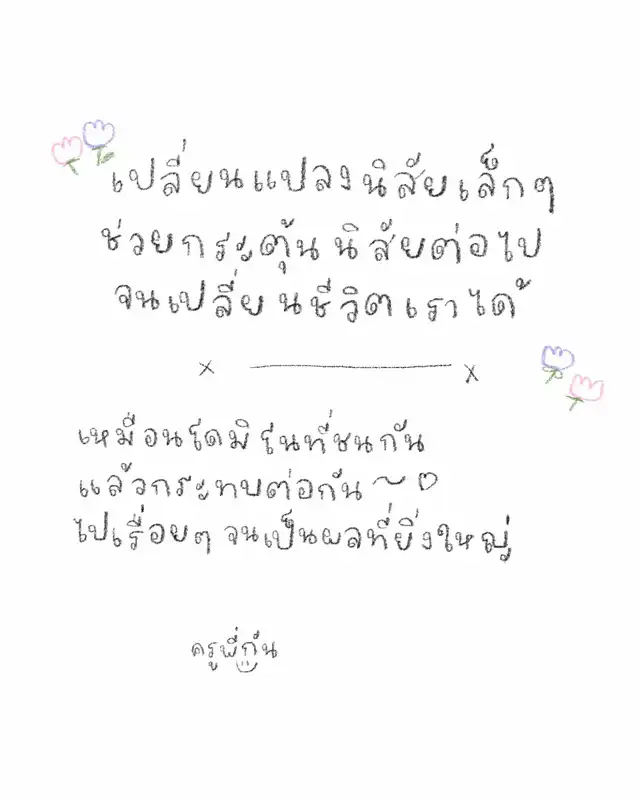 เปลี่ยนแปลงนิสัยเล็กๆ
ช่วยกระตุ้นนิสัยต่อไป
จนเปลี่ยนชีวิตเราได้
เหมือนโดมิโนที่ชนกัน
แล้วกระทบต่อกัน~♡
ไปเรื่อยๆ จนเป็นผลที่ยิ่งใหญ่
ครูพี่กัน